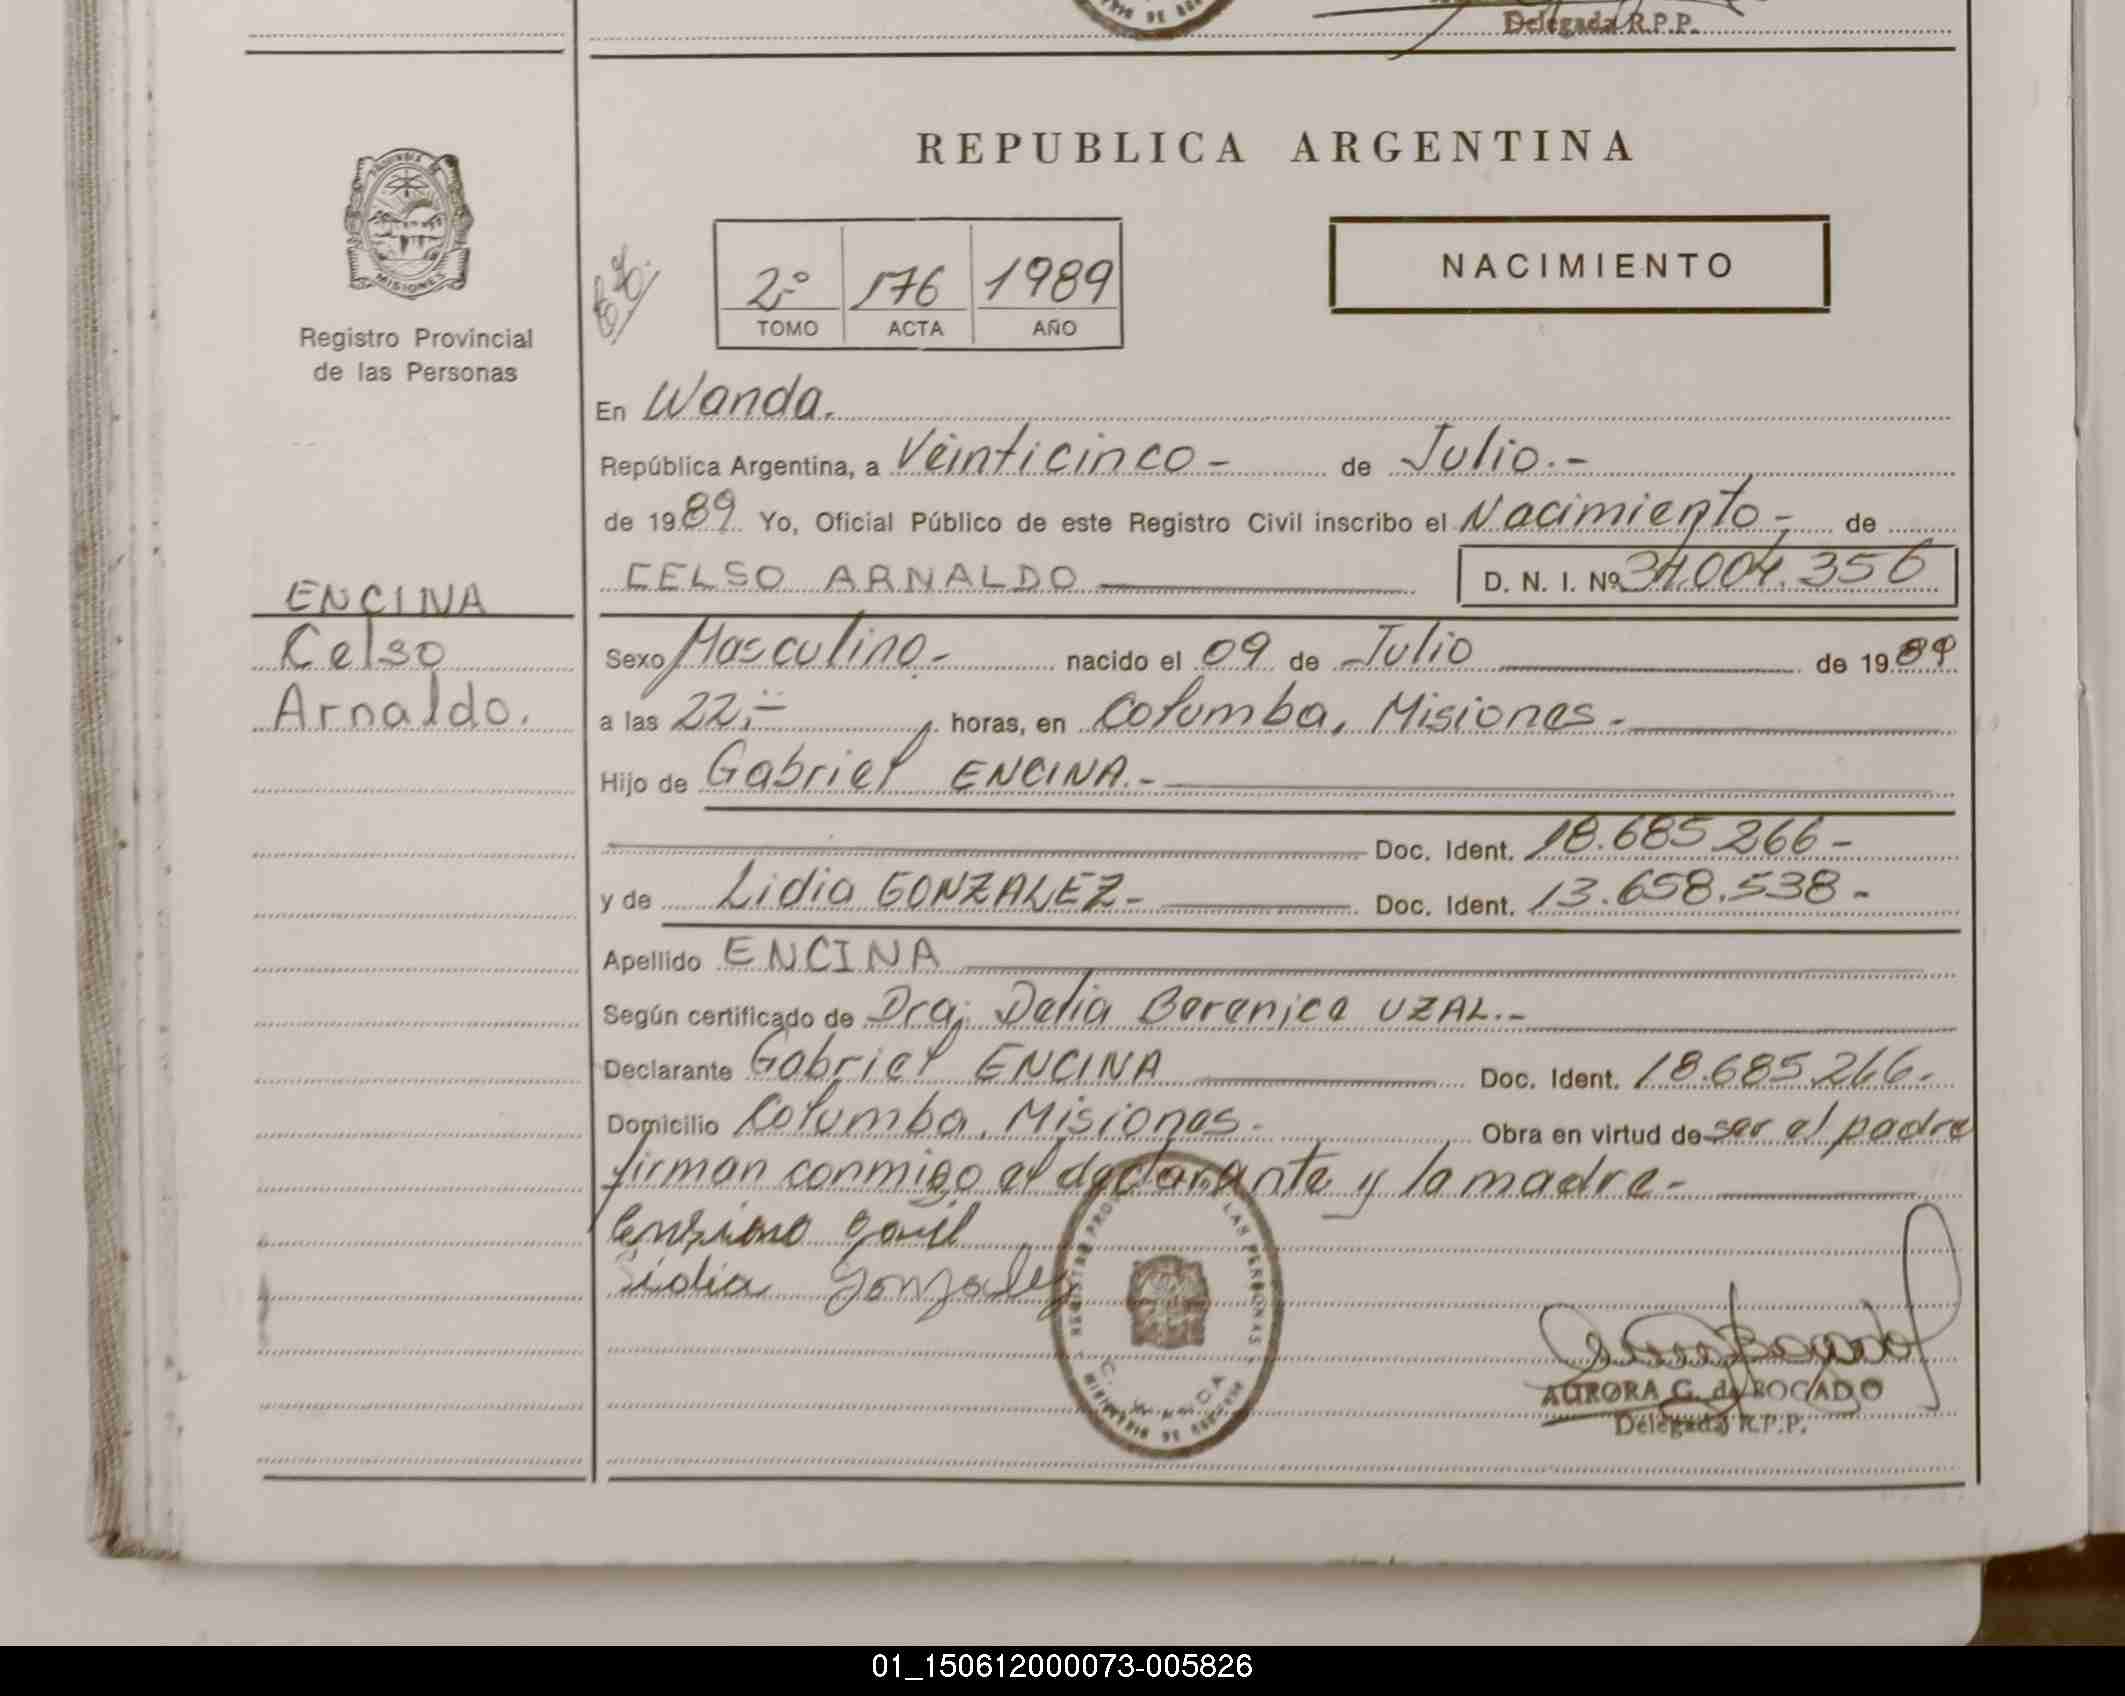 Delegada R.P.P.
REPUBLICA ARGENTINA
PROVINCIA DE
MISIONES
Registro Provincial
de las Personas
2º 176 1989
TOMO ACTA AÑO
NACIMIENTO
En Wanda.
República Argentina, a Veinticinco - de Julio.-
de 1989 Yo, Oficial Público de este Registro Civil inscribo el Nacimiento - de
CELSO ARNALDO D. N. I. Nº 34.004.356
ENCINA
Celso
Arnaldo.
Sexo Masculino.- nacido el 09 de Julio de 1989
a las 22,- horas, en Columba, Misiones.-
Hijo de Gabriel ENCINA.-
Doc. Ident. 18.685.266-
y de Lidia GONZALEZ- Doc. Ident. 13.658.538-
Apellido ENCINA
Según certificado de Dra; Delia Berenice UZAL.-
Declarante Gabriel ENCINA Doc. Ident. 18.685.266.
Domicilio Columba, Misiones. Obra en virtud de ser el padre
firman conmigo el declarante y la madre-
Lidia Gonzalez
REGISTRO PRO LAS PERSONAS
C. WANDA
AURORA G. de BOGADO
Delegada R.P.P.
01_150612000073-005826